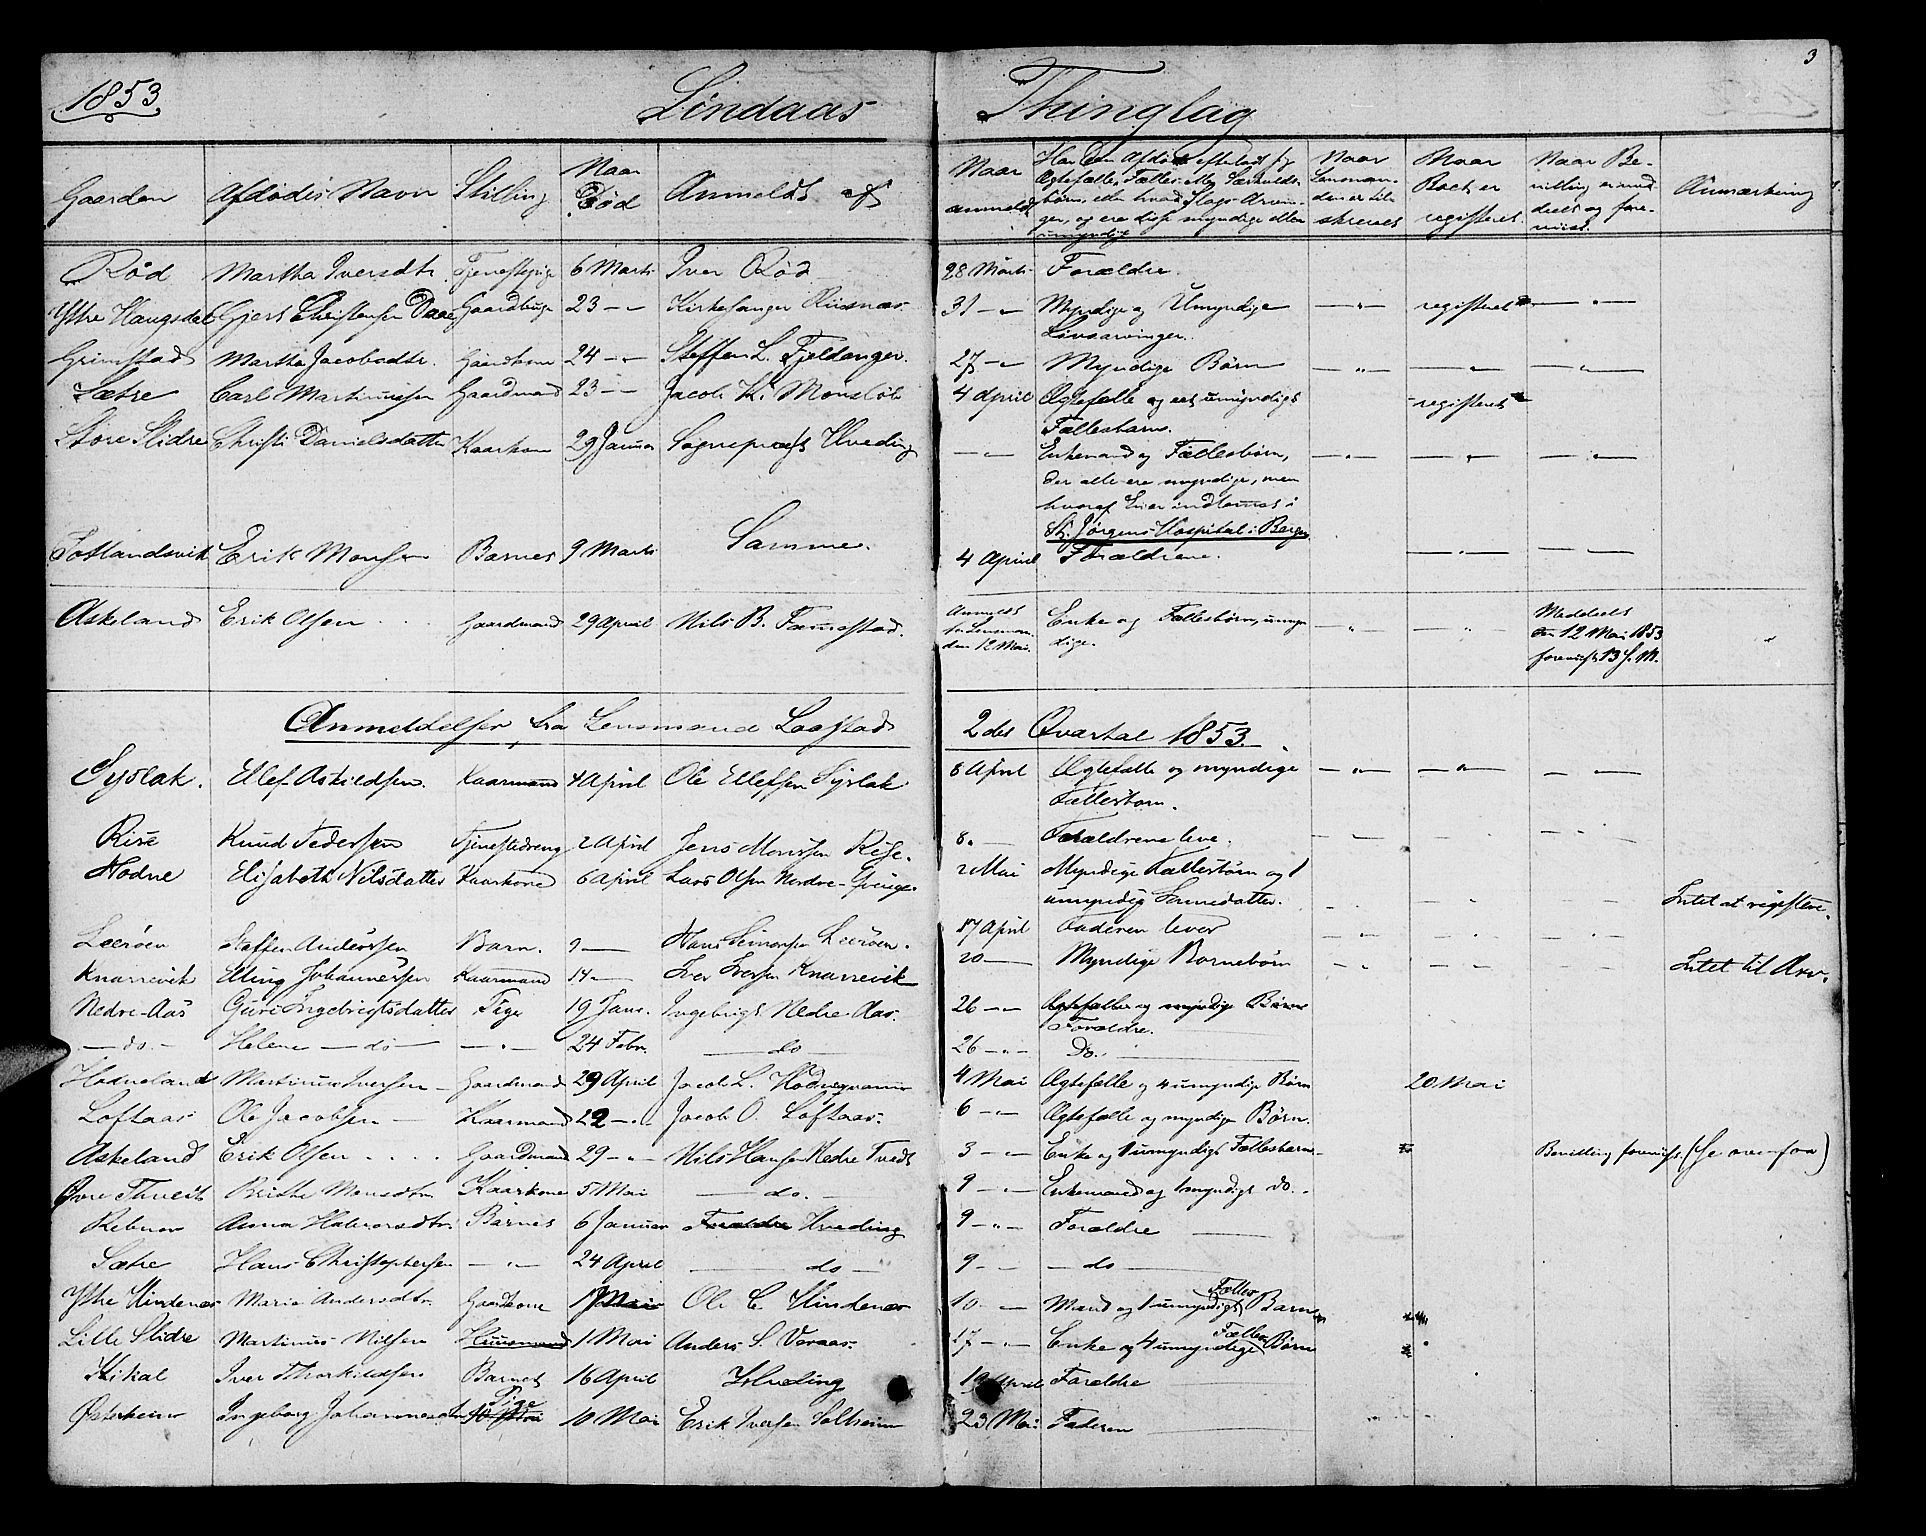 3
1853 Lindaas Thinglag
Gaarden Afdødes Navn Stilling Naar Død Anmeldt af Naar anmeldt Har den Afdøde efterladt sig Ægtefælle, Fælles- eller Særkulds-børn, eller hvad Slags Arvinger, og ere disse myndige eller umyndige Naar Lensmanden er tilskrevet Naar Boet er registeret Naar Bevilling er meddeelt og foreviist. Anmærkning
Rød Martha Iversdtr. Tjenestepige 6 Marts Iver Rød 28 Marts Forældre.
Ystre Haugsdal Gjert Christensen Daae Gaardbruger 23 — Kirkesanger Riisnæs 31 — Myndige og Umyndige — " — registeret — " —
Livsarvinger.
Grimstad Martha Jacobsdtr. Gaardkone 24 — " — Steffen L. Fjeldanger. 27 — Myndige Børn — " — — " — — " —
Sætre Carl Martinussen Gaardmand 23 — Jacob K. Monsløb 4 April Ægtefælle og eet umyndigt registeret
Fællesbarn.
Store Slidre Christi Danielsdatter Kaarkone 29 Januar Sognepræst Hveding — " — Enkemand og Fællesbørn, — " — — " — — " —
der alle ere myndige, men
hvoraf Een er indlemmet i
St. Jørgens Hospital i Bergen
Totlandsvik Erik Monsen Barnet 9 Marts Samme. 4 April Forældrene. — " — — " —
Askeland Erik Olsen Gaardmand 29 April Nils B. Fæmestad. Anmeldt for Lensman. den 12 Mai. Enke og Fællesbørn, umyndige. — " — — " — Meddeelt den 12 Mai 1853 foreviist 13 s. M.
Anmeldelser fra Lensmand Laastad 2det Qvartal 1853.
Syslak. Ellef Askildsen. Kaarmand 4 April Ole Ellefsen Syslak 8 April Ægtefælle og myndige — " — — " — — " —
Fællesbørn.
Rise Knud Pedersen Tjenestedreng 2 April Jens Monssen Rise. 8 — Forældrene leve.
Hodne Elisabeth Nilsdatter Kaarkone 6 April Lars Olsen Nordre-Qvinge 2 Mai Myndige Fællesbørn og 1
umyndig Sønnedatter. Intet at registere.
Leerøen Steffen Anderssen Barn. 9 — Hans Simonsen Leerøen. 17 April Faderen lever
Knarrevik Elling Johannessen Kaarmand 14 — Iver Iversen Knarrevik 20 — Myndige Børnebørn Intet til Arv.
Nedre-Aas Guri Ingebrigtsdatter Pige 19 Janr. Ingebrigt Nedre Aas. 26 — Ægtefælle og myndige Børn
Forældre.
— do. — Helene — do — — " — 24 Febr. — do — 26 — " — Do.
Hodneland Martinus Iversen Gaardmand 29 April Jacob L. Hodneqvamme 4 Mai Ægtefælle og 4 umyndige Børn 20 Mai
Loftaas Ole Jacobsen — Kaarmand 22 — Jacob O. Loftaas. 6 — Ægtefælle og myndige Børn.
Askeland Erik Olsen Gaardmand 29 — " — Nils Hansen Nedre Tvedt 3 — Enke og 1 umyndigt Fællesbarn Bevilling foreviist. (Se ovenfor)
Øvre Thveit Brithe Monsdtr. Kaarkone 5 Mai — do. — 9 — Enkemand og 1 myndigt do.
Rebnor Anna Halvorsdtr. Barnet 6 Januar Forældre Hveding 9 — " — Forældre
Sætre Hans Christophersen — " — 24 April — do — 9 — — do —
Ystre Hindenæs Marie Andersdtr. Gaardkone 1 Mai Ole C. Hindenæs 10. — " Mand og 1 umyndigt Fælles Barn
Lille Slidre Martinus Nilsen Huusmand 1 Mai Anders S. Voraas. 17 — " — Enke og 4 umyndige Fælles Børn
Kikal Iver Thorkildsen Barnet 16 April Hveding 19 April Forældre
Østerheim Ingeborg Johannesdtr. Pige 10 Mai Erik Iversen Solheim 23 Mai Faderen